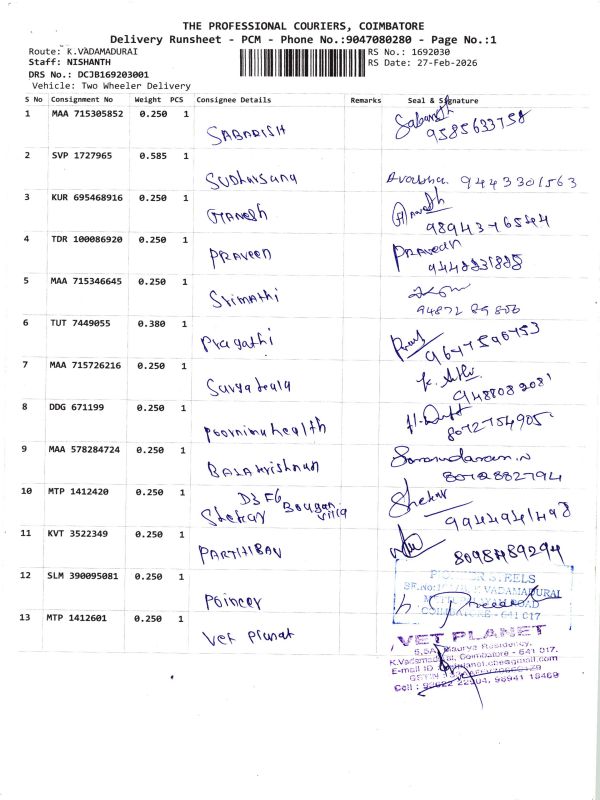 THE PROFESSIONAL COURIERS, COIMBATORE
Delivery Runsheet - PCM - Phone No.:9047080280 - Page No.:1
Route: K.VADAMADURAI
RS No.: 1692030
Staff: NISHANTH
RS Date: 27-Feb-2026
DRS No.: DCJB169203001
Vehicle: Two Wheeler Delivery
S No Consignment No Weight PCS Consignee Details Remarks Seal & Signature
1 MAA 715305852 0.250 1 SABARISH Sabarish
9585633758
2 SVP 1727965 0.585 1 SUDharsana 9443301563
3 KUR 695468916 0.250 1 GANesh
9894376544
4 TDR 100086920 0.250 1 PRAVEEN PRAVEEN
5 MAA 715346645 0.250 1 Srimathi
6 TUT 7449055 0.380 1 Pragathi
9647596753
7 MAA 715726216 0.250 1
9488082081
8 DDG 671199 0.250 1 poornima health
8072754905
9 MAA 578284724 0.250 1 BALAkrishnan
10 MTP 1412420 0.250 1 Shekar D3 F6 Shekar
11 KVT 3522349 0.250 1 PARTHIBAN
12 SLM 390095081 0.250 1 Poincer
VADAMADURAI
COIMBATORE - 641 017
13 MTP 1412601 0.250 1 Vet Planat
VET PLANET
Maurya Residency,
Coimbatore - 641 017.
E-mail ID
Cell : 98422 22504, 98941 18469